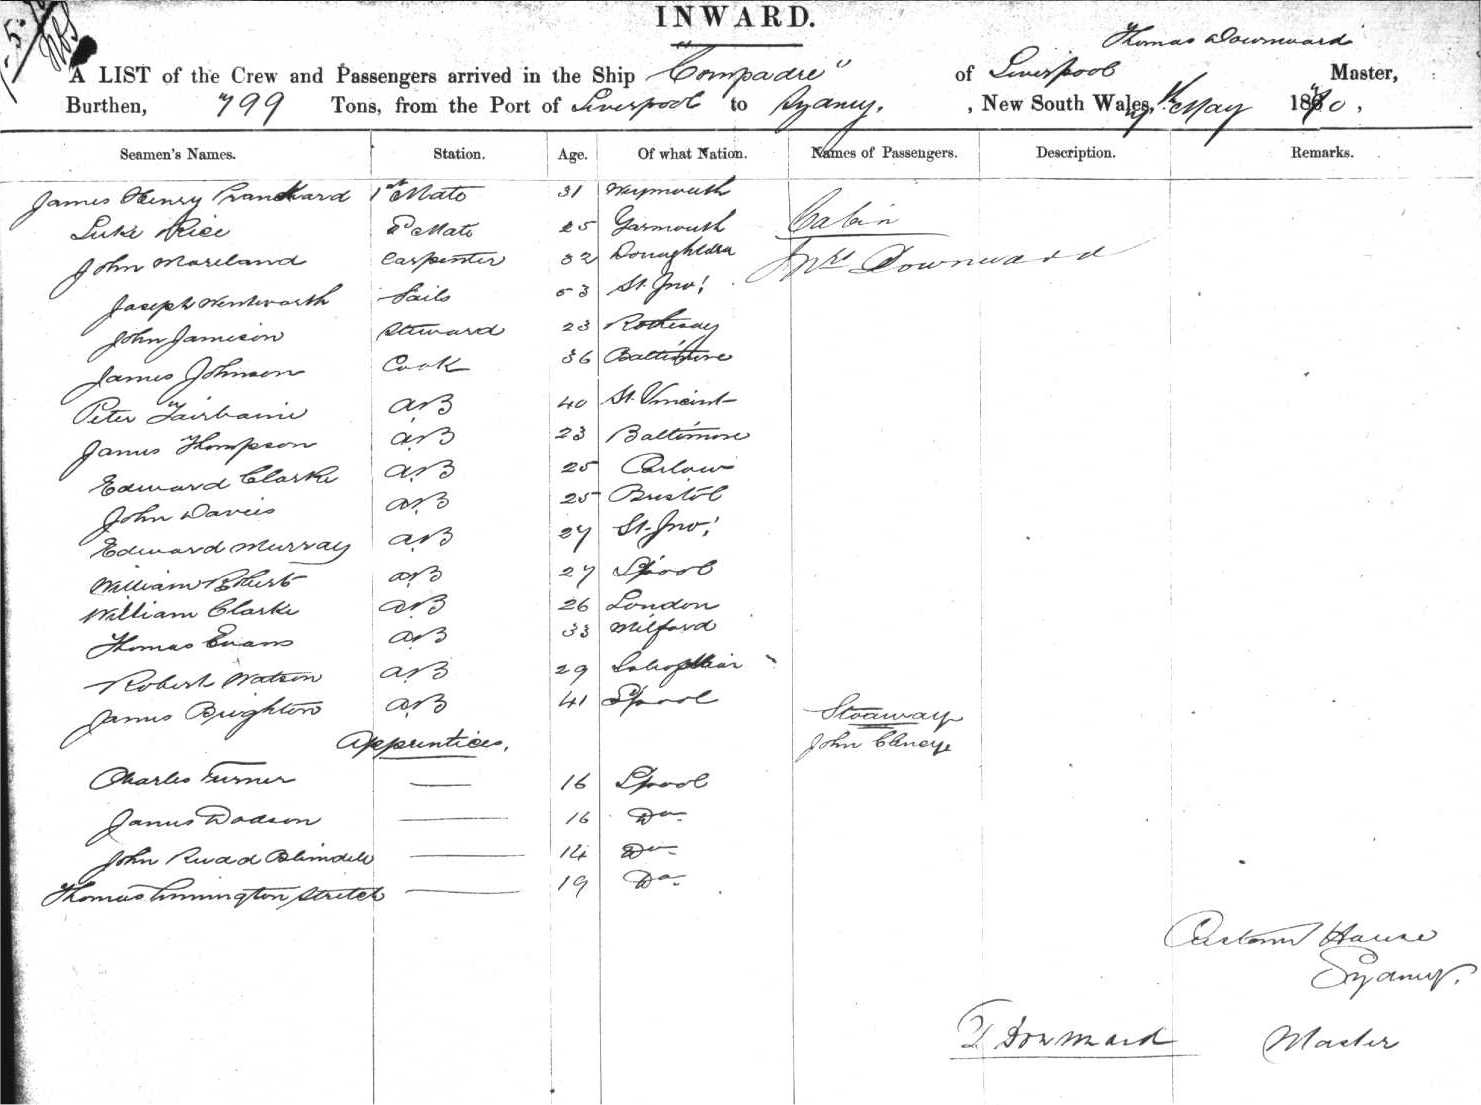 INWARD.
Thomas Downward
A LIST of the Crew and Passengers arrived in the Ship "Compadre" of Liverpool Master,
Burthen, 799 Tons, from the Port of Liverpool to Sydney, , New South Wales, May 1870,
Seamen's Names. Station. Age. Of what Nation. Names of Passengers. Description. Remarks.
James Henry 1st Mate 31 Weymouth
Luke Rice 2d Mate 25 Yarmouth Cabin
John Moreland Carpenter 32 Mrs Downward
Joseph Wentworth Sails 53 St. Jno!
John Jamieson Steward 23 Rothesay
James Johnson Cook 36 Baltimore
Peter Fairbairn AB 40 St. Vincent
James Thompson AB 23 Baltimore
Edward Clarke AB 25 Carlow
John Davies AB 25 Bristol
Edward Murray AB 27 St. Jno!
William AB 27 L'pool
William Clarke AB 26 London
Thomas Evans AB 33 Milford
Robert Watson AB 29
James Brighton AB 41 L'pool Stoaway
Apprentices. John Clancye
Charles Turner — 16 L'pool
James Dodson — 16 Do
John Rudd Blundell — 14 Do
Thomas Linnington Stretch — 19 Do
Customs House
Sydney.
T Downward Master